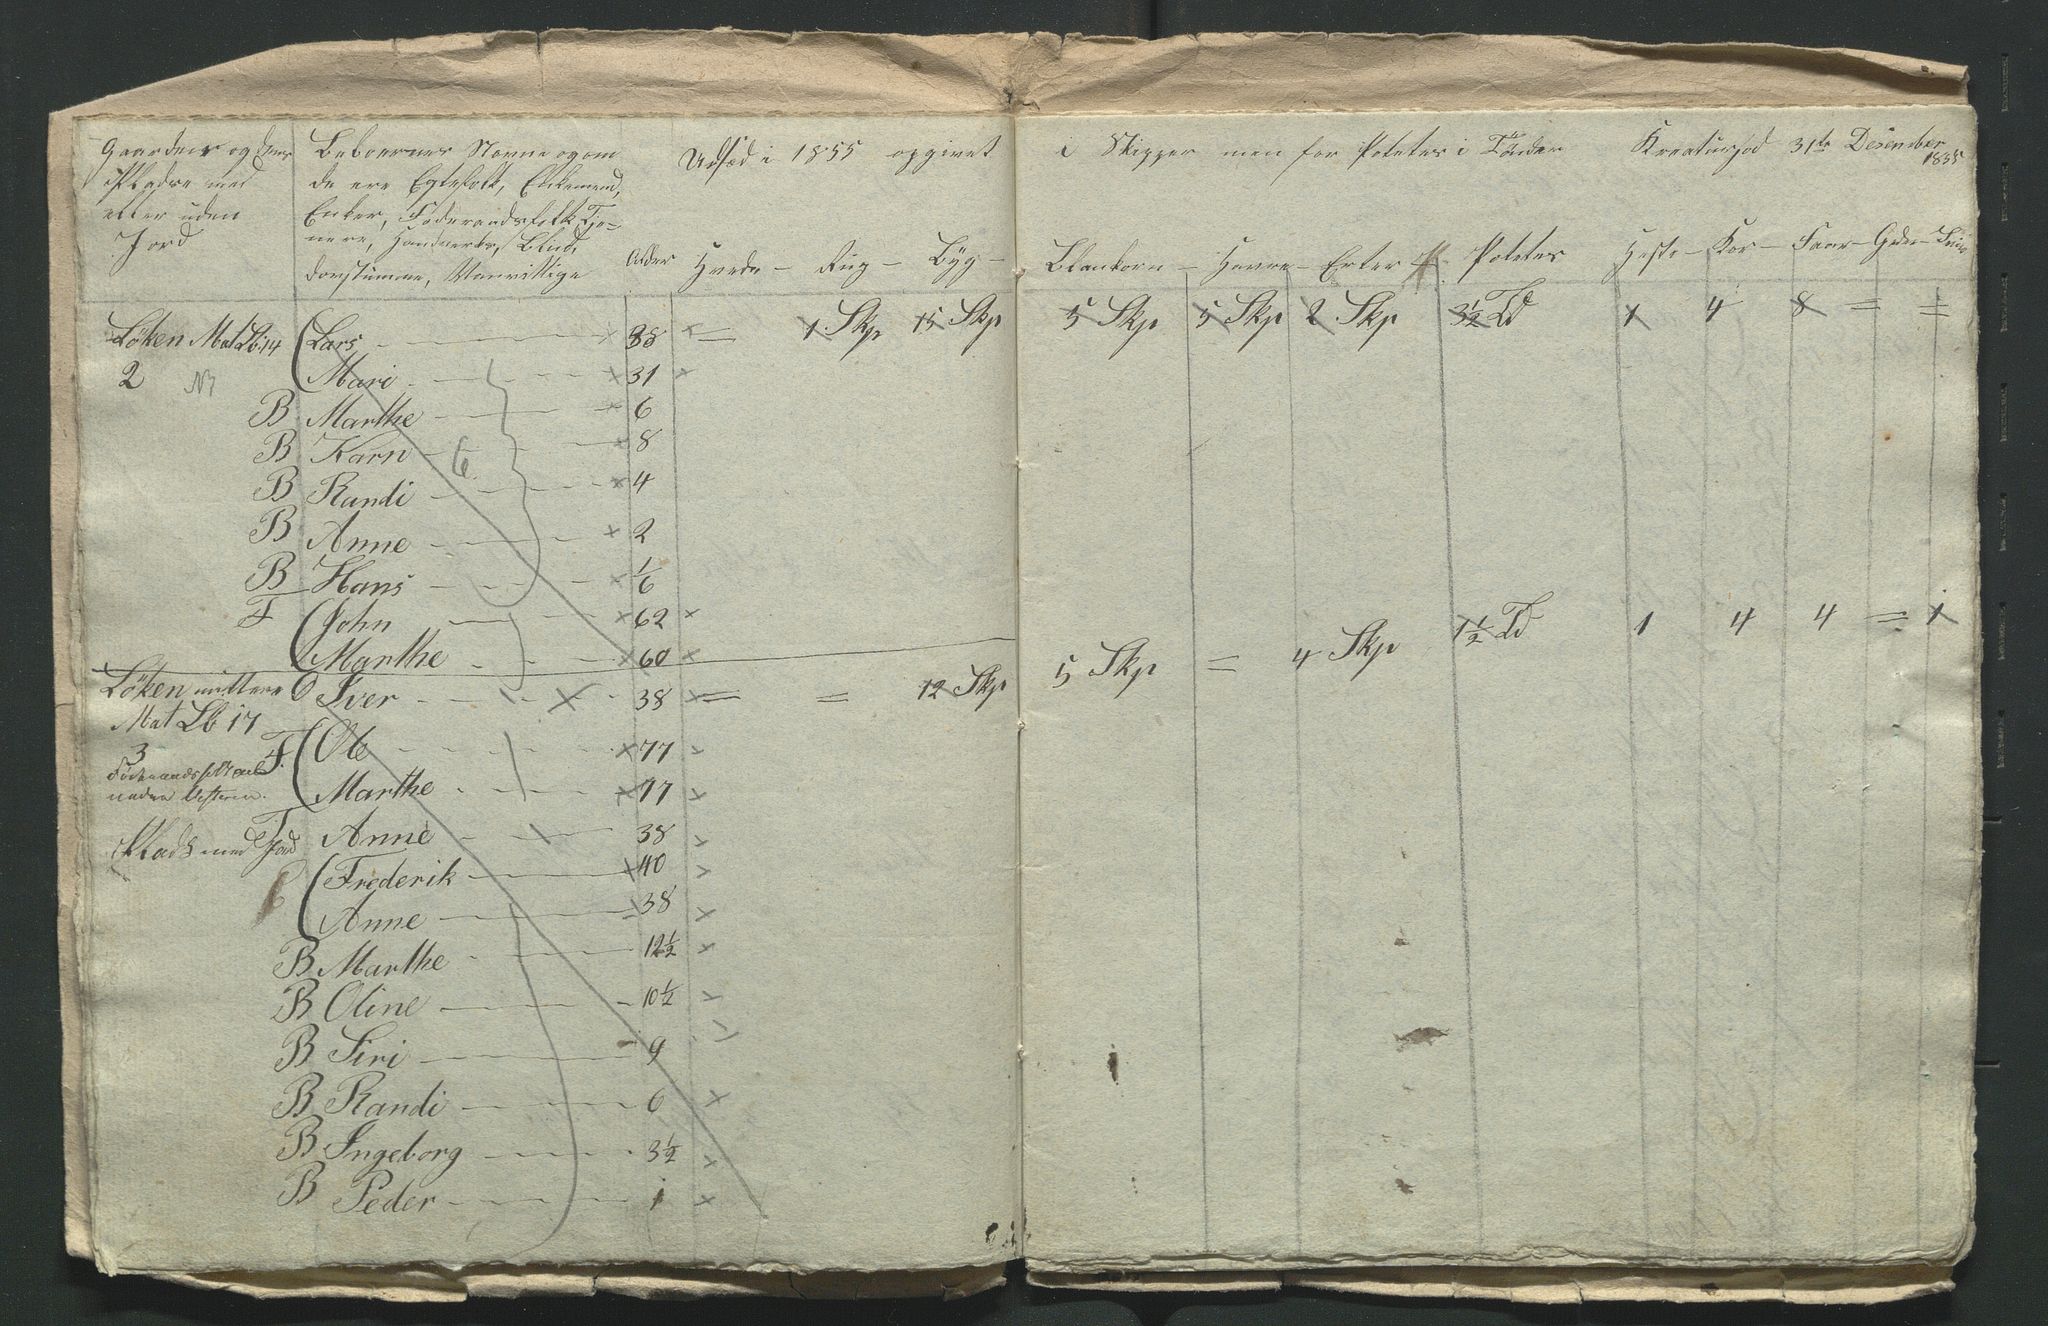 Gaardens og dens
Pladse med
eller uden
Jord
Beboernes Navne og om
de ere Egtefolk, Enkemend,
Enker, Föderaadsfolk Tje-
nere, Handverks, Blinde,
Dovstumme, Vanvittige
Alder
Udsæd i 1855 opgivet i Skipper men for Potetes i Tönder
Kreaturhold 31te Desember 1855
Hvede - Rug - Byg - Blankorn - Havre - Erter Potetes Heste - Kör - Faar - Geder - Sviin
Löken Mat Lb 14 (Lars 38 = 1 Skp 15 Skp 5 Skp 5 Skp 2 Skp 3½ Td 1 4 8 = =
2 N1 (Mari 31
B Marthe 6
B Karn 8
6
B Randi 4
B Anne 2
B Hans 1/6
F (John 62
(Marthe 60
Löken mittere O Iver 38 = = 12 Skp 5 Skp = 4 Skp 1½ Td 1 4 4 = 1
Mat Lb 17
3 F (Ole 77
Föderaadsfolk
(Marthe 77
T Anne 38
Plads med Jord
(Frederik 40
(Anne 38
B Marthe 12½
B Oline 10½
B Siri 9
B Randi 6
B Ingeborg 3½
B Peder 1